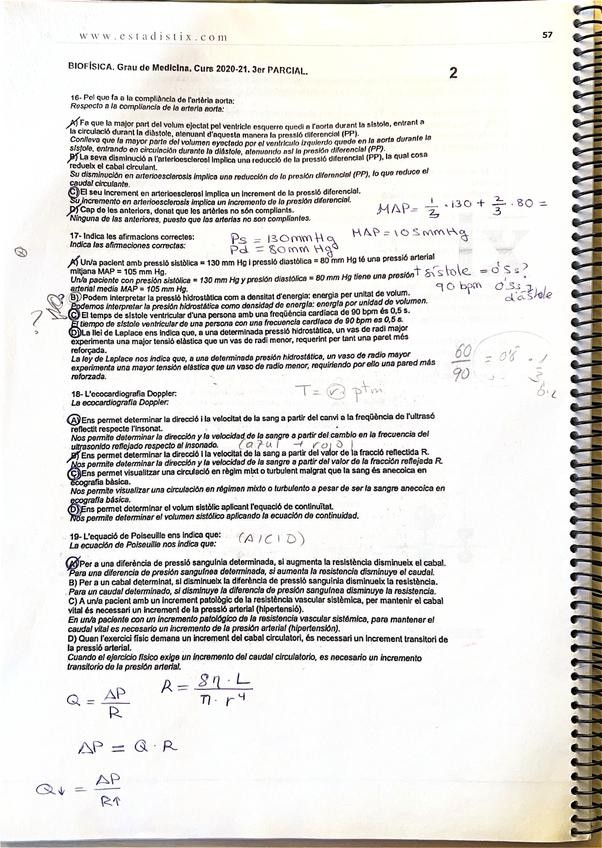 www.estadistix.com
57
BIOFÍSICA. Grau de Medicina. Curs 2020-21. 3er PARCIAL.
2
16- Pel que fa a la compliància de l'artèria aorta:
Respecto a la compliancia de la arteria aorta:
A) Fa que la major part del volum ejectat pel ventricle esquerre quedi a l'aorta durant la sístole, entrant a
la circulació durant la diàstole, atenuant d'aquesta manera la pressió diferencial (PP).
Conlleva que la mayor parte del volumen eyectado por el ventrículo izquierdo quede en la aorta durante la
sístole, entrando en circulación durante la diástole, atenuando así la presión diferencial (PP).
B) La seva disminució a l'arteriosclerosi implica una reducció de la pressió diferencial (PP), la qual cosa
redueix el cabal circulant.
Su disminución en arteriosclerosis implica una reducción de la presión diferencial (PP), lo que reduce el
caudal circulante.
C) El seu increment en arteriosclerosi implica un increment de la pressió diferencial.
Su incremento en arteriosclerosis implica un incremento de la presión diferencial.
D) Cap de les anteriors, donat que les artèries no són compliants.
Ninguna de las anteriores, puesto que las arterias no son compliantes.
MAP = 1/3 · 130 + 2/3 · 80 =
MAP = 105 mmHg
17- Indica les afirmacions correctes:
Indica las afirmaciones correctas:
Ps = 130 mm Hg
Pd = 80 mm Hg
A) Un/a pacient amb pressió sistòlica = 130 mm Hg i pressió diastòlica = 80 mm Hg té una pressió arterial
mitjana MAP = 105 mm Hg.
Un/a paciente con presión sistólica = 130 mm Hg y presión diastólica = 80 mm Hg tiene una presión
arterial media MAP = 105 mm Hg.
t sístole = 0'5 s?
90 bpm 0'3 s
diástole
B) Podem interpretar la pressió hidrostàtica com a densitat d'energia: energia per unitat de volum.
Podemos interpretar la presión hidrostática como densidad de energía: energía por unidad de volumen.
C) El temps de sístole ventricular d'una persona amb una freqüència cardíaca de 90 bpm és 0,5 s.
El tiempo de sístole ventricular de una persona con una frecuencia cardíaca de 90 bpm es 0,5 s.
D) La llei de Laplace ens indica que, a una determinada pressió hidrostàtica, un vas de radi major
experimenta una major tensió elàstica que un vas de radi menor, requerint per tant una paret més
reforçada.
La ley de Laplace nos indica que, a una determinada presión hidrostática, un vaso de radio mayor
experimenta una mayor tensión elástica que un vaso de radio menor, requiriendo por ello una pared más
reforzada.
?
60/90 = 0'6
18- L'ecocardiografia Doppler:
La ecocardiografía Doppler:
T = r ptm
A) Ens permet determinar la direcció i la velocitat de sang a partir del canvi a la freqüència de l'ultrasó
reflectit respecte l'insonat.
Nos permite determinar la dirección y la velocidad de la sangre a partir del cambio en la frecuencia del
ultrasonido reflejado respecto al insonado.
(azul + rojo)
B) Ens permet determinar la direcció i la velocitat de la sang a partir del valor de la fracció reflectida R.
Nos permite determinar la dirección y la velocidad de la sangre a partir del valor de la fracción reflejada R.
C) Ens permet visualitzar una circulació en règim mixt o turbulent malgrat que la sang és anecoica en
ecografia bàsica.
Nos permite visualizar una circulación en régimen mixto o turbulento a pesar de ser la sangre anecoica en
ecografía básica.
D) Ens permet determinar el volum sistòlic aplicant l'equació de continuïtat.
Nos permite determinar el volumen sistólico aplicando la ecuación de continuidad.
19- L'equació de Poiseuille ens indica que:
La ecuación de Poiseuille nos indica que:
(A/C/D)
A) Per a una diferència de pressió sanguínia determinada, si augmenta la resistència disminueix el cabal.
Para una diferencia de presión sanguínea determinada, si aumenta la resistencia disminuye el caudal.
B) Per a un cabal determinat, si disminueix la diferència de pressió sanguínia disminueix la resistència.
Para un caudal determinado, si disminuye la diferencia de presión sanguínea disminuye la resistencia.
C) A un/a pacient amb un increment patològic de la resistència vascular sistèmica, per mantenir el cabal
vital és necessari un increment de la pressió arterial (hipertensió).
En un/a paciente con un incremento patológico de la resistencia vascular sistémica, para mantener el
caudal vital es necesario un incremento de la presión arterial (hipertensión).
D) Quan l'exercici físic demana un increment del cabal circulatori, és necessari un increment transitori de
la pressió arterial.
Cuando el ejercicio físico exige un incremento del caudal circulatorio, es necesario un incremento
transitorio de la presión arterial.
Q = ΔP/R
R = 8η · L / π · r⁴
ΔP = Q · R
Q↓ = ΔP/R↑